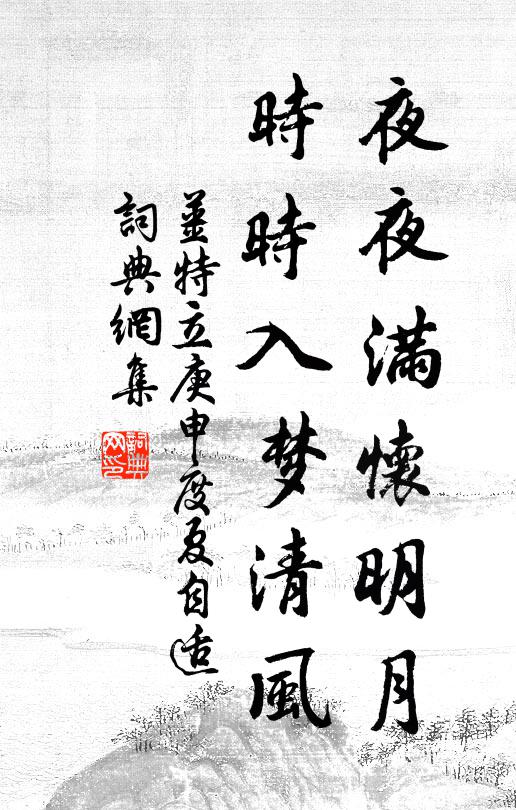 夜夜滿懷明月
時時入梦清風
姜特立庚申度夏自适
詞典網集
詞典
网印